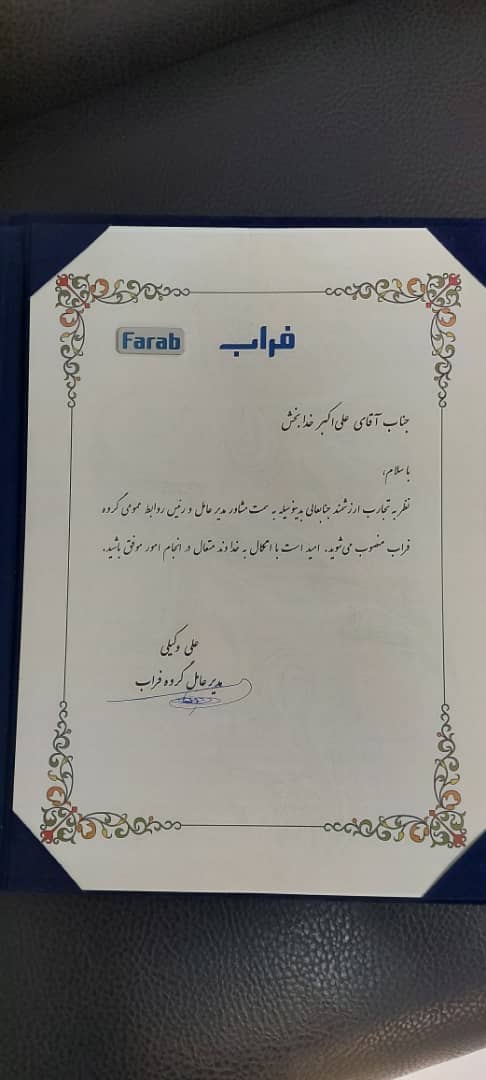 Farab فراب
جناب آقای علی‌اکبر خدابخش
با سلام،
نظر به تجارب ارزشمند جنابعالی بدینوسیله به سمت مشاور مدیر عامل و رئیس روابط عمومی گروه
فراب منصوب می‌شوید. امید است با اتکال به خداوند متعال در انجام امور موفق باشید.
علی وکیلی
مدیر عامل گروه فراب